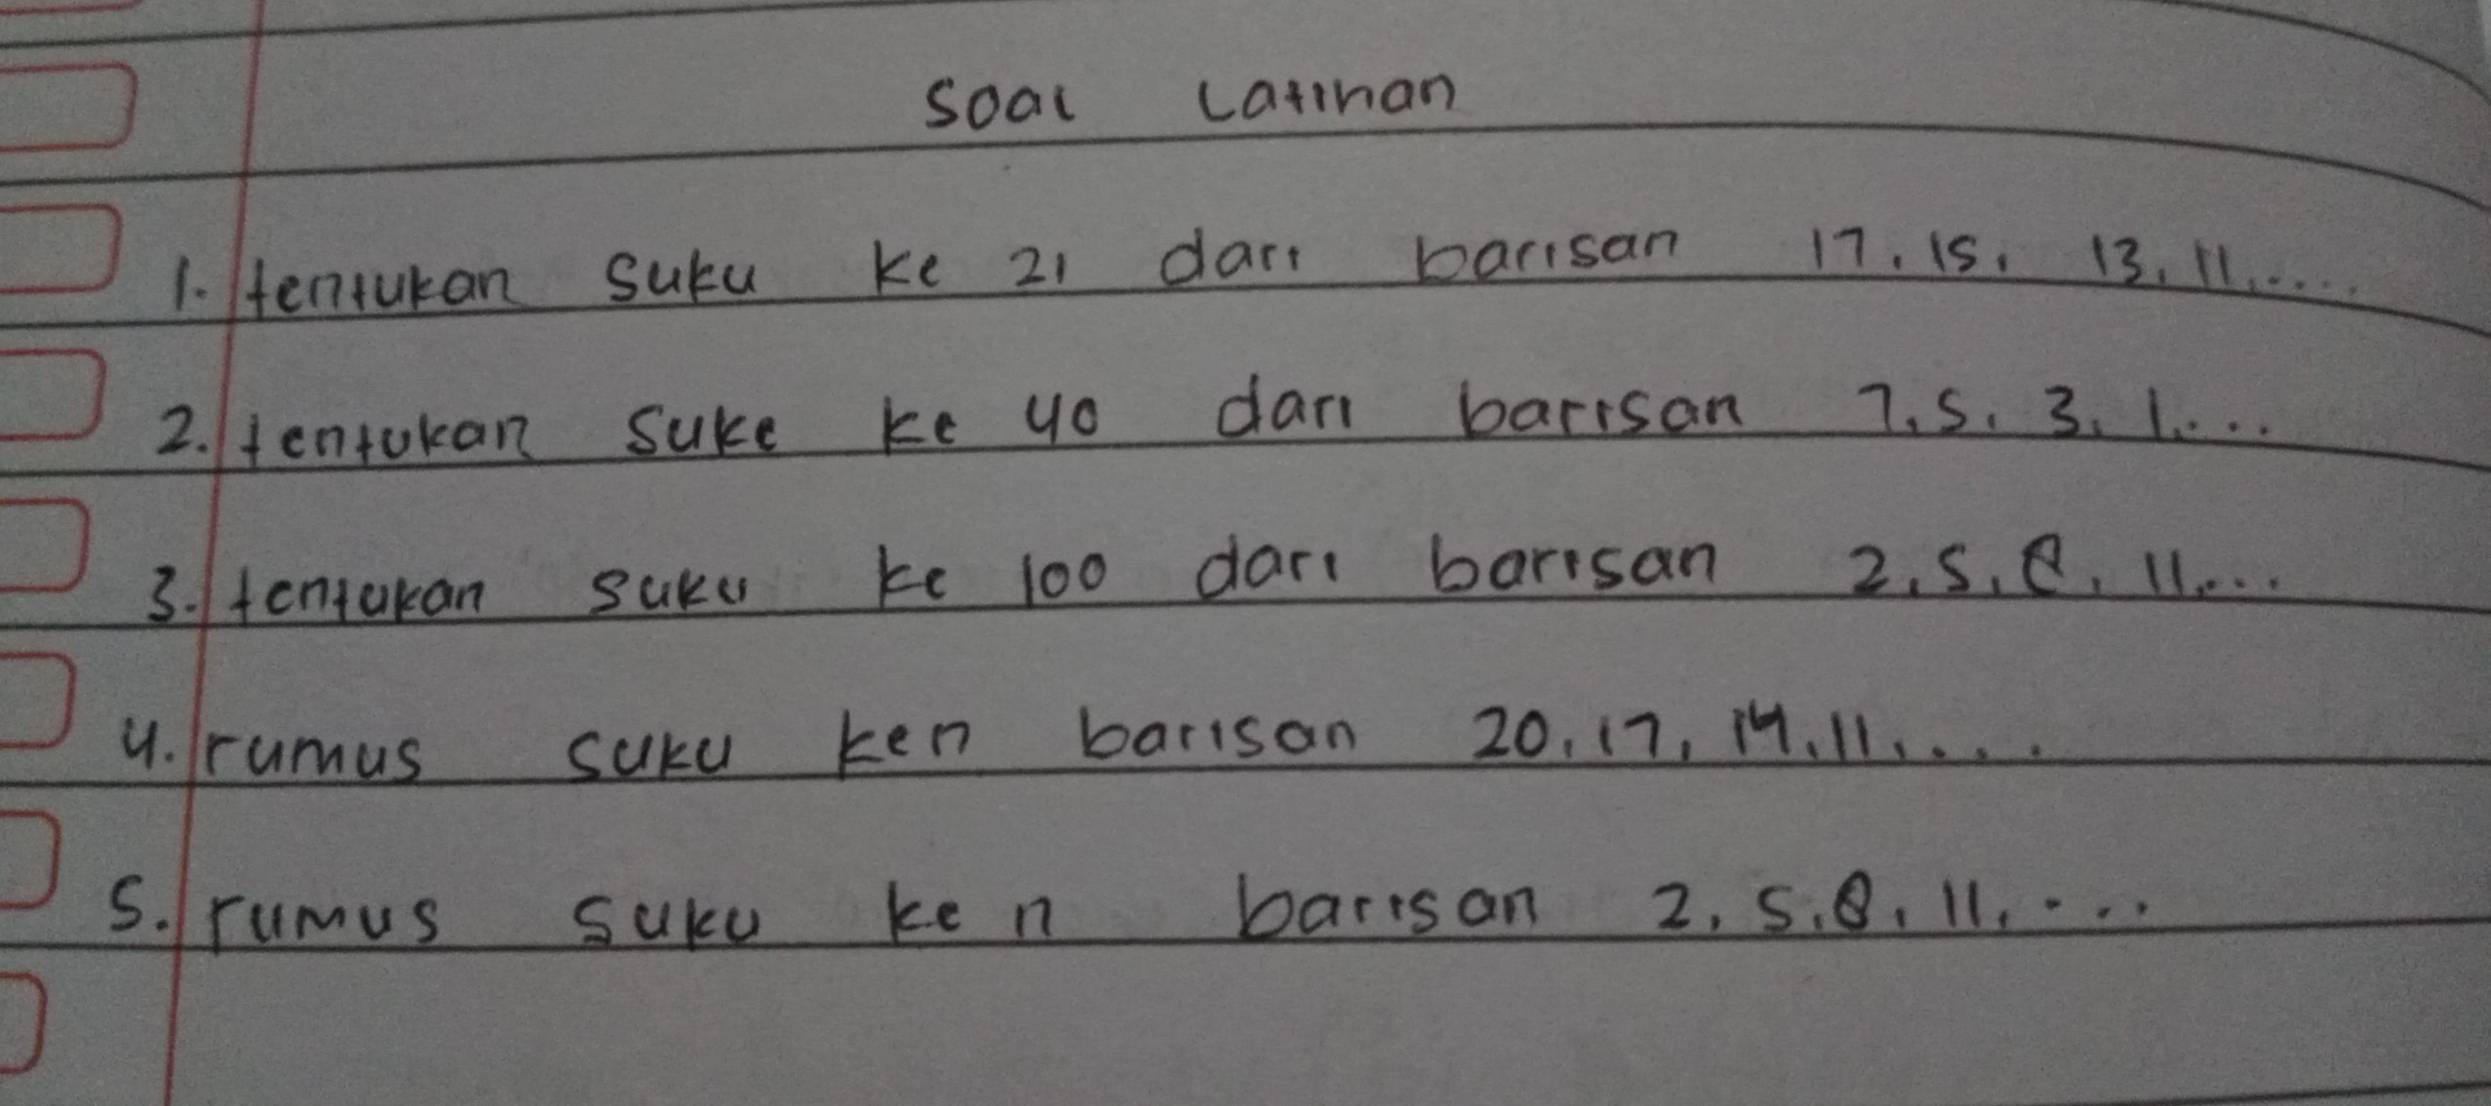 Soal Latihan
1. tentukan suku ke 21 dari barisan 17, 15, 13, 11, .....
2. tentukan suke ke 40 dari barisan 7, 5, 3, 1, ...
3. tentukan suku ke 100 dari barisan 2, 5, 8, 11, ...
4. rumus suku ken barisan 20, 17, 14, 11, ....
5. rumus suku ke n barisan 2, 5, 8, 11, ....